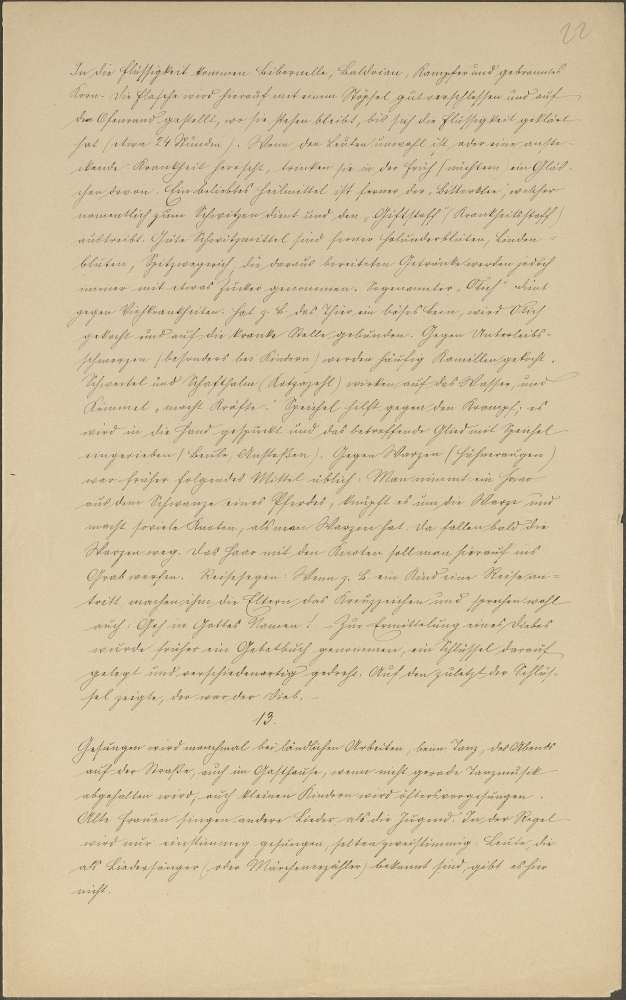 22
In die Flüssigkeit kommen Bibernelle, Baldrian, Kampfer und gebranntes
Korn. Die Flasche wird hierauf mit einem Stöpsel gut verschlossen und auf
den Ofenrand gestellt, wo sie stehen bleibt, bis sich die Flüssigkeit geklärt
hat (etwa 24 Stunden). Wenn den Leuten unwohl ist, oder eine anste-
ckende Krankheit herrscht, trinken sie in der Früh (nüchtern) ein Gläs-
chen davon. Ein beliebtes Heilmittel ist ferner der Bitterklee, welcher
namentlich zum Schwitzen dient und den "Giftstoff" (Krankheitsstoff)
austreibt. Gute Schwitzmittel sind ferner Holunderblüten, Linden-
blüten, Spitzwegerich, die daraus bereiteten Getränke werden jedoch
immer mit etwas Zucker genommen. Sogenannter
gegen Viehkrankheiten. Hat z. B. das Thier ein böses Bein, wird
gekocht und auf die kranke Stelle gebunden. Gegen Unterleibs-
schmerzen (besonders bei Kindern) werden häufig Kamillen gekocht.
und Schafthalm wirken auf das Wasser, und
Kümmel "macht Kräfte". Speichel hilft gegen den Krampf; es
wird in die Hand gespuckt und das betreffende Glied mit Speichel
eingerieben. Gegen Warzen (Hühneraugen)
war früher folgendes Mittel üblich: Man nimmt ein Haar
aus dem Schwanze eines Pferdes, knüpft es um die Warze und
macht soviele Knoten, als man Warzen hat. Da fallen bald die
Warzen weg. Das Haar mit den Knoten soll man hierauf ins
Grab werfen. Reisesegen: Wenn z. B. ein Kind eine Reise an-
tritt machen ihm die Eltern das Kreuzzeichen und sprechen wohl
auch: Geh in Gottes Namen! - Zur Ermittelung eines Diebes
wurde früher ein Gebetbuch genommen, ein Schlüssel darauf
gelegt und verschiedenartig gedreht. Auf den zuletzt der Schlüs-
sel zeigte, der war der Dieb.
13.
Gesungen wird manchmal bei ländlichen Arbeiten, beim Tanz, des Abends
auf der Straße, auch im Gasthause, wenn nicht gerade Tanzmusik
abgehalten wird, auch kleinen Kindern wird öfters vorgesungen.
Alte Frauen singen andere Lieder als die Jugend. In der Regel
wird nur einstimmig gesungen, selten zweistimmig. Leute, die
als Liedersänger (oder Märchenerzähler) bekannt sind, gibt es hier
nicht.